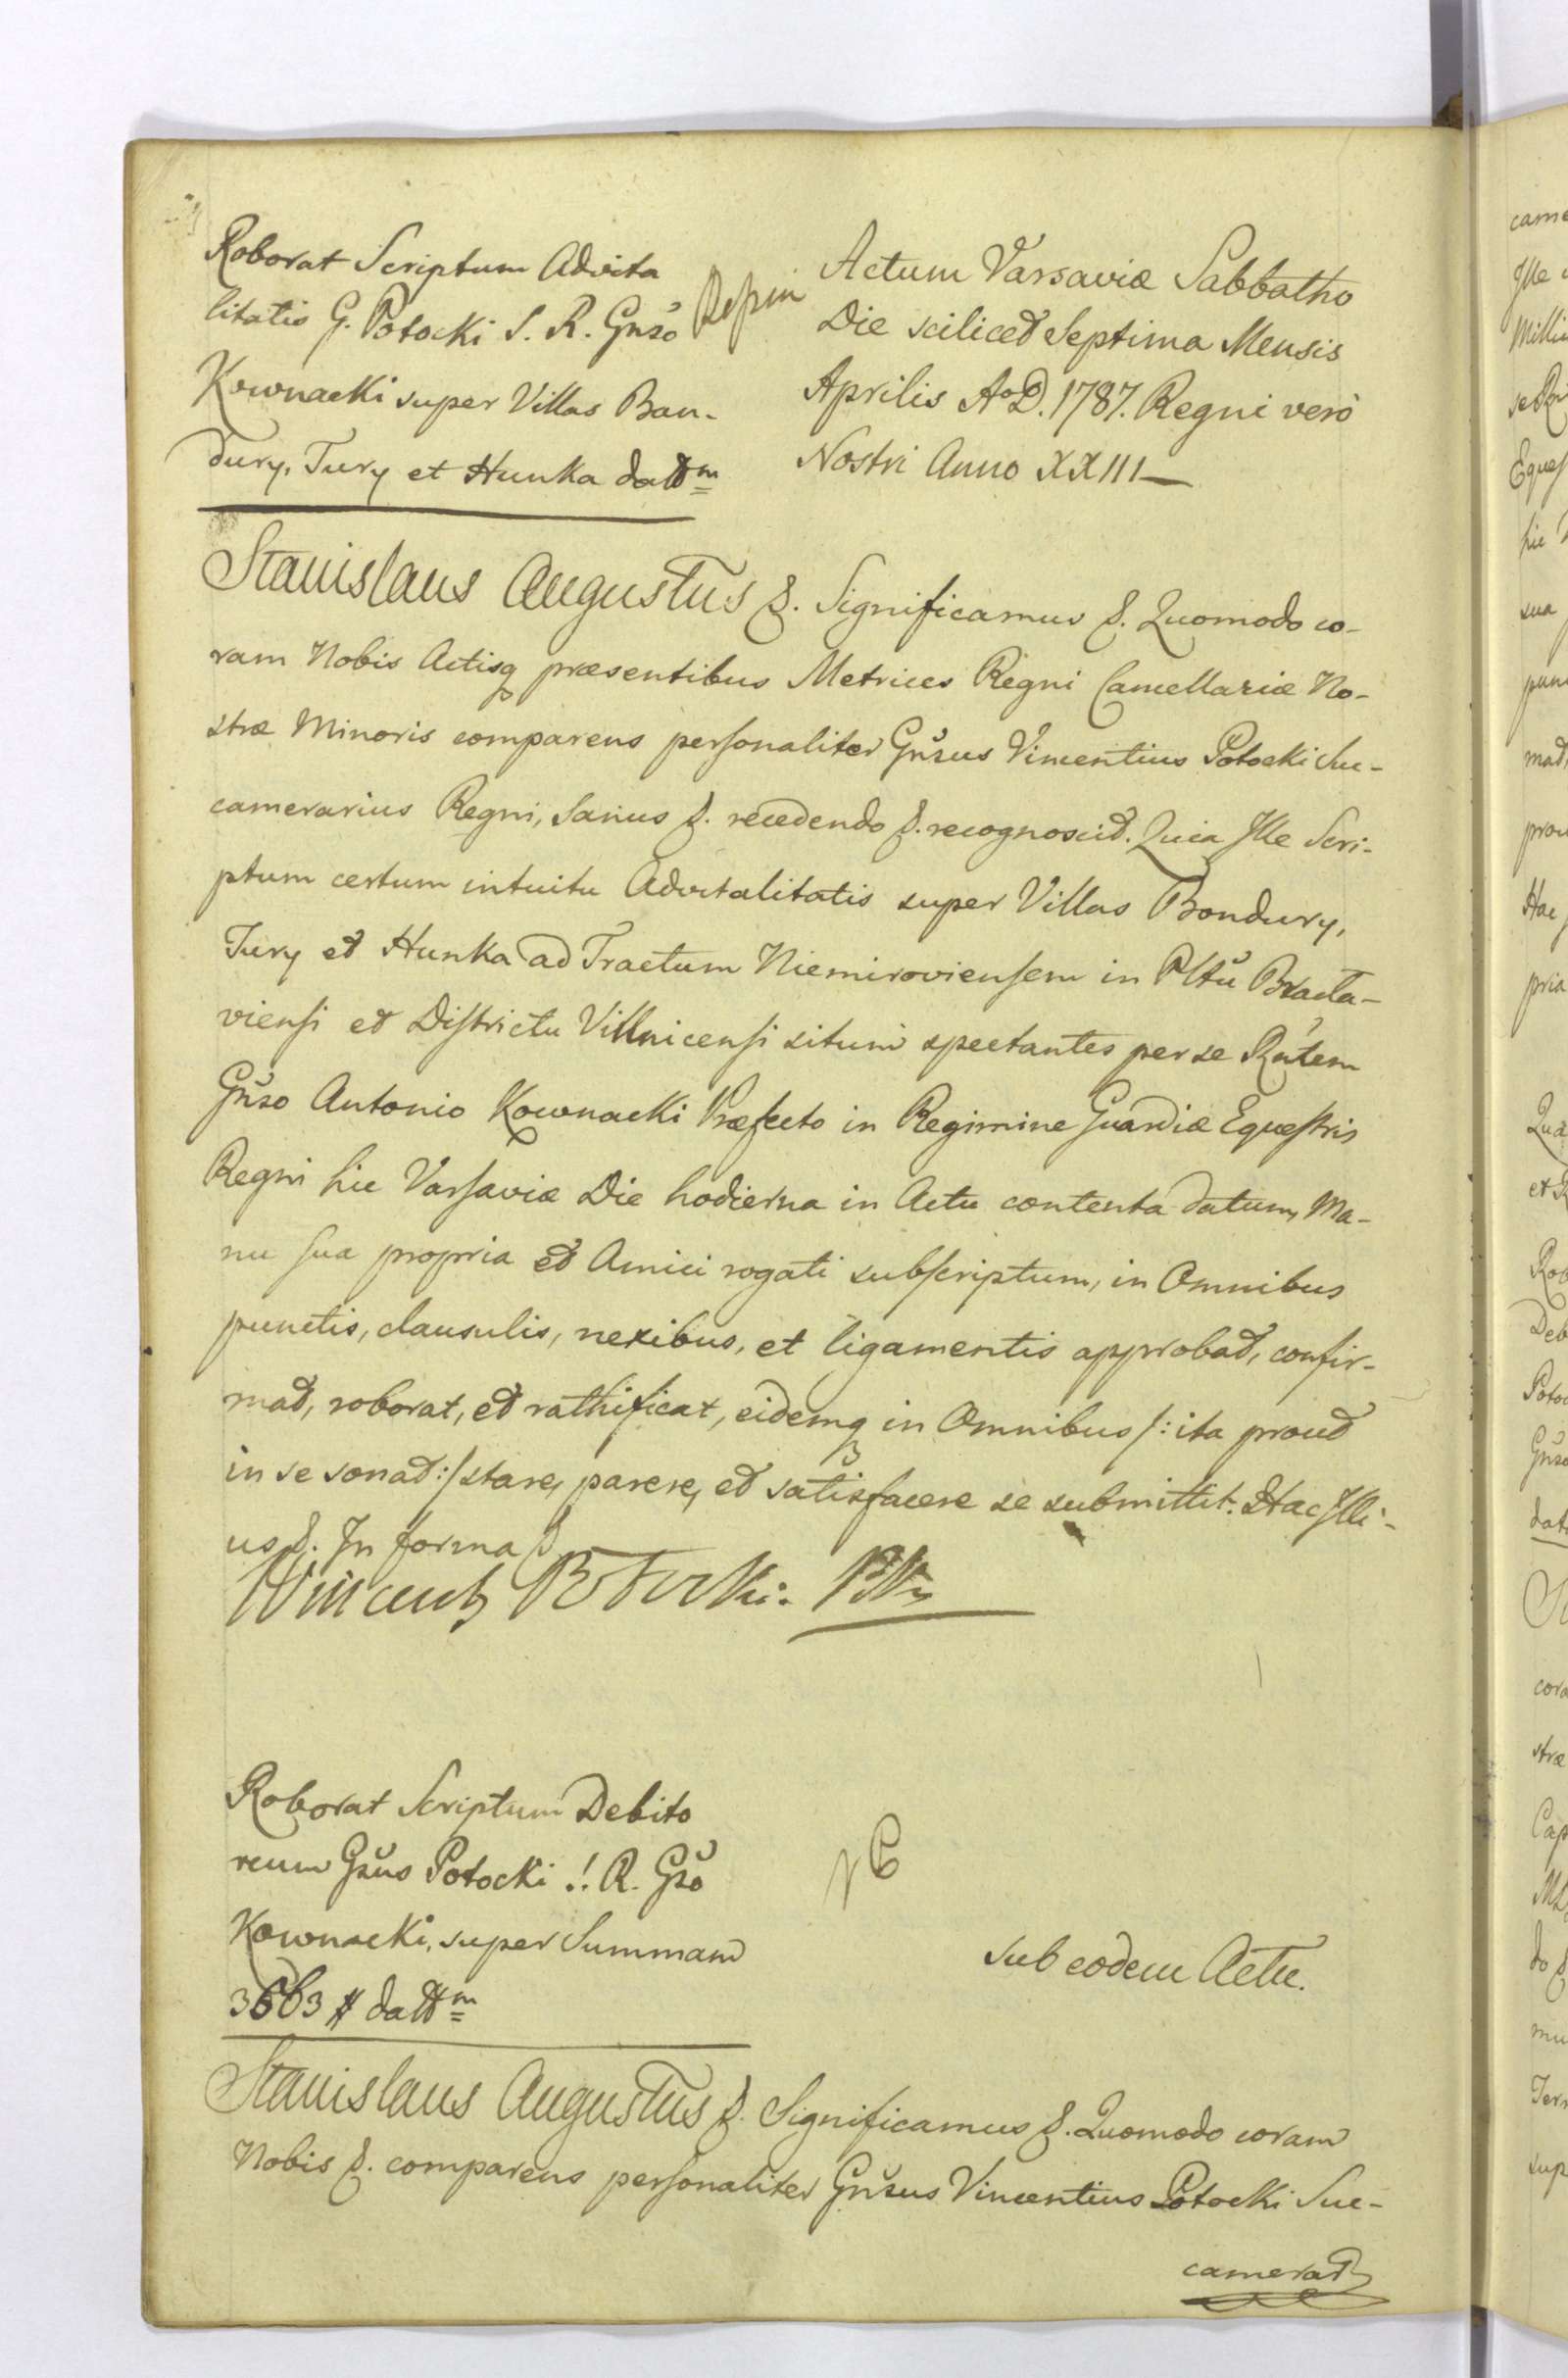 Roborat Scriptum Advita
litatis G. Potocki S. R. Gnŝo
Kownacki super Villas Ban-
dury, Tury et Hunka dattm
Actum Varsaviæ Sabbatho
Die scilicet Septima Mensis
Aprilis AoD. 1787. Regni verò
Nostri Anno XXIII
Stanislaus Augustus &. Significamus &. Quomodo co-
ram Nobis Actisq præsentibus Metrices Regni Cancellariæ No-
stræ Minoris comparens personaliter Gnŝus Vincentius Potocki Suc-
camerarius Regni, Sanus &. recedendo &. recognoscit. Quia Ille Scri-
ptum certum intuitu Advitalitatis super Villas Bondury,
Tury et Hunka ad Tractum Niemiroviensem in Plttu Bracla-
viensi et Districtu Villnicensi situm spectantes per se Rñtem
Gnŝo Antonio Kownacki Præfecto in Regimine Guardiæ Equestris
Regni hic Varsaviæ Die hodierna in Actu contenta datum, Ma-
nu sua propria et Amici rogati subscriptum, in Omnibus
punctis, clausulis, nexibus, et ligamentis approbat, confir-
mat, roborat, et rathificat, eidemq in Omnibus /: ita prout
in se sonat :/ stare, parere, et satisfacere se submittit. Hac Illi-
us &. In forma &
Wincenty Potocki. PK
Roborat Scriptum Debito
reum Gŝus Potocki S. R. Gŝo
Kownacki, super Summam
3663 # dattm
sub eodem Actu.
Stanislaus Augustus &. Significamus &. Quomodo coram
Nobis &. comparens personaliter Gnŝus Vincentius Potocki Suc-
camerar